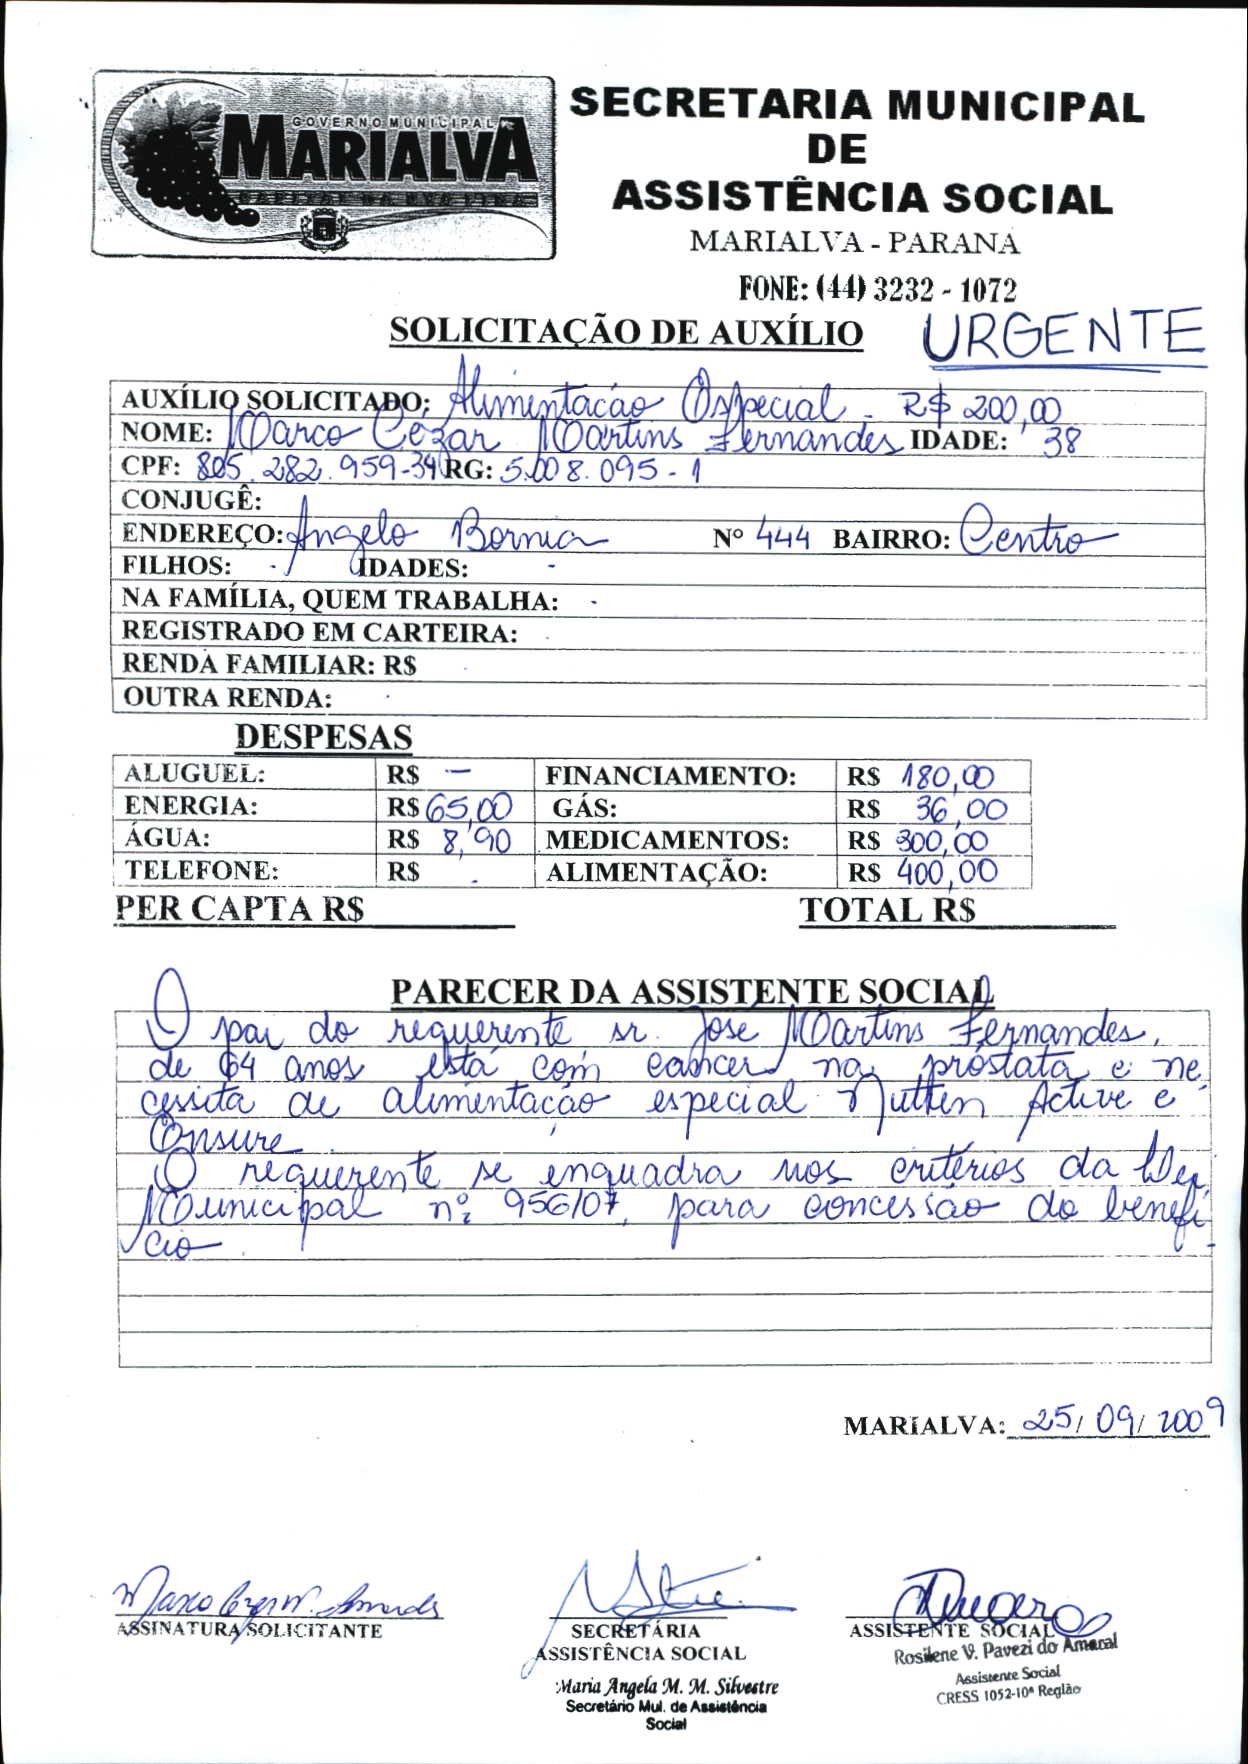 GOVERNO MUNICIPAL
MARIALVA
CAPITAL DA UVA FINA
SECRETARIA MUNICIPAL
DE
ASSISTÊNCIA SOCIAL
MARIALVA - PARANÁ
FONE: (44) 3232 - 1072
SOLICITAÇÃO DE AUXÍLIO URGENTE
AUXÍLIO SOLICITADO: Alimentação Especial - R$ 200,00
NOME: Marco Cézar Martins Fernandes IDADE: 38
CPF: 805.282.959-34 RG: 5.008.095-1
CONJUGÊ:
ENDEREÇO: Angelo Bornia Nº 444 BAIRRO: Centro
FILHOS: - IDADES: -
NA FAMÍLIA, QUEM TRABALHA: -
REGISTRADO EM CARTEIRA: -
RENDA FAMILIAR: R$ -
OUTRA RENDA: -
DESPESAS
ALUGUEL: R$ — FINANCIAMENTO: R$ 180,00
ENERGIA: R$ 65,00 GÁS: R$ 36,00
ÁGUA: R$ 8,90 MEDICAMENTOS: R$ 300,00
TELEFONE: R$ - ALIMENTAÇÃO: R$ 400,00
PER CAPTA R$ TOTAL R$
PARECER DA ASSISTENTE SOCIAL
O pai do requerente sr. José Martins Fernandes,
de 64 anos está com cancer na próstata e ne
cessita de alimentação especial Nutren Active e
Ensure.
O requerente se enquadra nos critérios da Lei
Municipal nº 956/07, para concessão do benefí
cio.
MARIALVA: 25/09/2009
ASSINATURA SOLICITANTE
SECRETÁRIA
ASSISTÊNCIA SOCIAL
Maria Angela M. M. Silvestre
Secretário Mul. de Assistência
Social
ASSISTENTE SOCIAL
Rosilene V. Pavezi do Amaral
Assistente Social
CRESS 1052-10ª Região